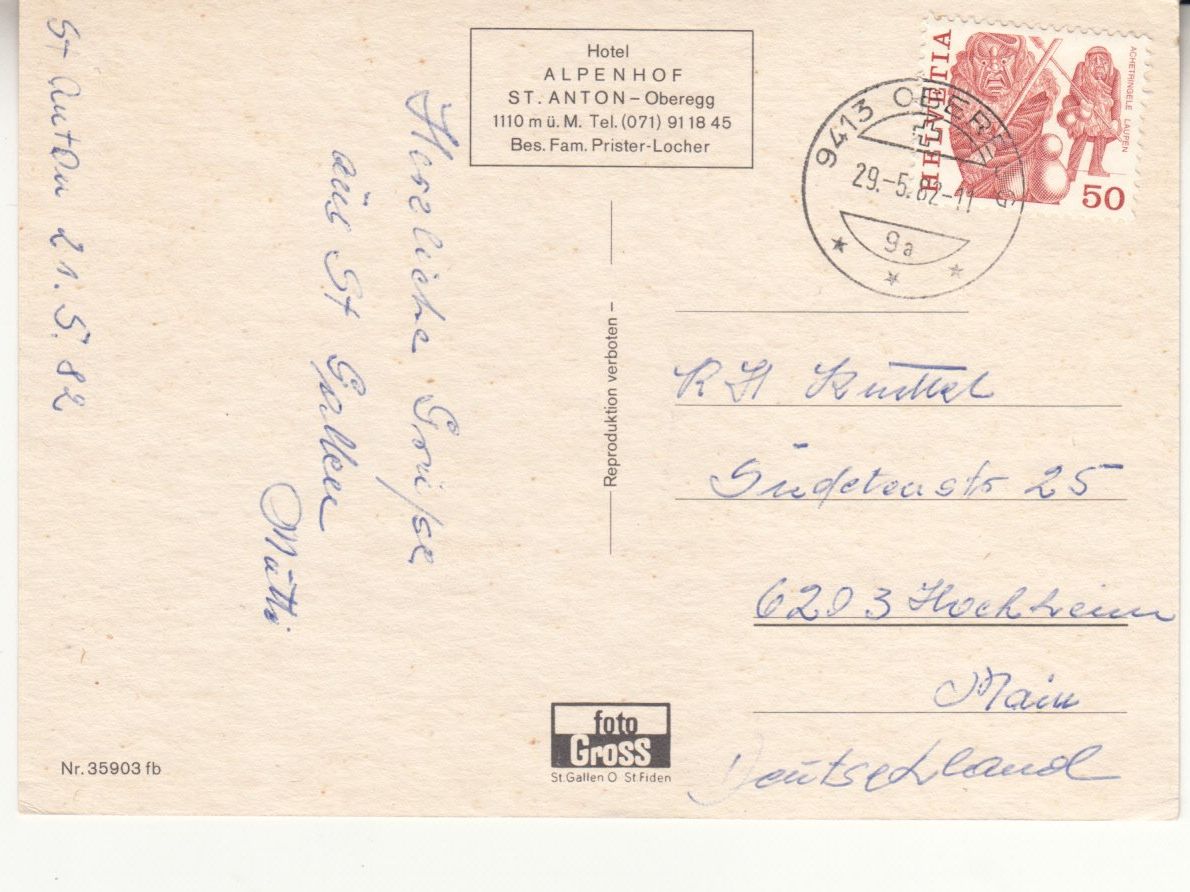 St Anton 21.5.82
Herzliche Grüsse
aus St Gallen
Mutti
Hotel
ALPENHOF
ST. ANTON – Oberegg
1110 m ü. M. Tel. (071) 91 18 45
Bes. Fam. Prister-Locher
HELVETIA
ACHETRINGELE LAUPEN
50
9413 OBEREGG
29.-5.82-11
9a
– Reproduktion verboten –
Sudetenstr 25
6203 Hochheim
Main
Deutschland
foto
Gross
St.Gallen O St.Fiden
Nr. 35903 fb